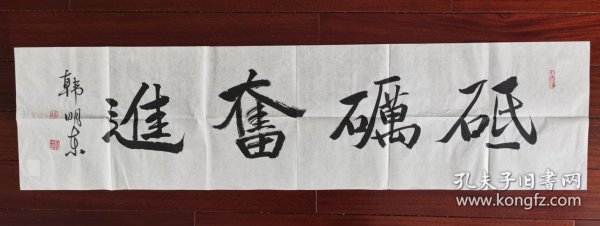 砥礪奮進
韩明东
孔夫子旧書网
www.kongfz.com